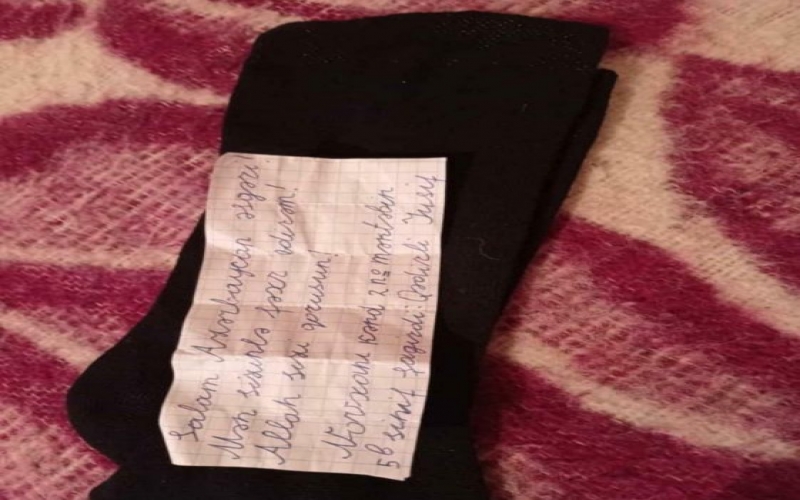 Salam Azərbaycan əsgəri!
Mən sizinlə fəxr edirəm!
Allah sizi qorusun!
Novxanı kənd 2 №li məktəbin
5b sinif şagirdi: Qədirli Yusif